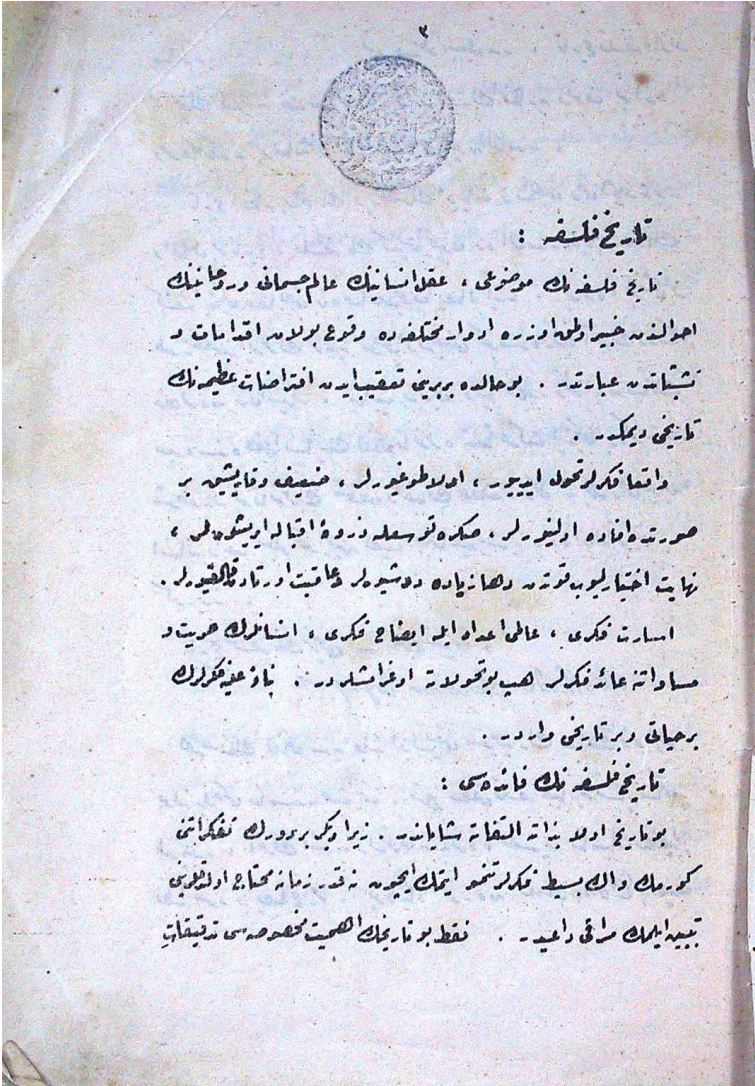 ٣
تاریخ فلسفه :
تاریخ فلسفه نك موضوعی ، عقل انسانینك عالم جسمانی و روحانینك
احوالندن خبیر اولمق اوزره ادوار مختلفه ده وقوع بولان اقدامات و
تشبثاتدن عبارتدر . بو حالده بربرینی تعقیب ایدن افتراضات عظیمه نك
تاریخی دیمكدر .
واقعا فكرلر تحول ایدییور ، اولا طوغیورلر ، ضعیف و قاریشیق بر
صورتده افاده اولنیورلر ، صكره توسعله ذروۀ اقباله ایریشیورلر ،
نهایت اختیارلیوب قوتدن دها زیاده دوشیورلر و عاقبت اورتادن قالقیورلر .
اسارت فكری ، عالمی اعداد ایله ایضاح فكری ، انسانلرك حریت و
مساواتنه عائد فكرلر هپ بو تحولاته اوغرامشلردر . بناءً علیه فكرلرك
بر حیاتی و بر تاریخی واردر .
تاریخ فلسفه نك فائده سی :
بو تاریخ اولا بذاته التفاته شایاندر . زیرا دیكر بر دورك تفكراتنی
كورمك و اك بسیط فكرلر تنمو ایتمك ایچون نه قدر زمانه محتاج اولدقلرینی
تبیین ایلمك مراقی داعیدر . فقط بو تاریخك اهمیت مخصوصه سی تدقیقات